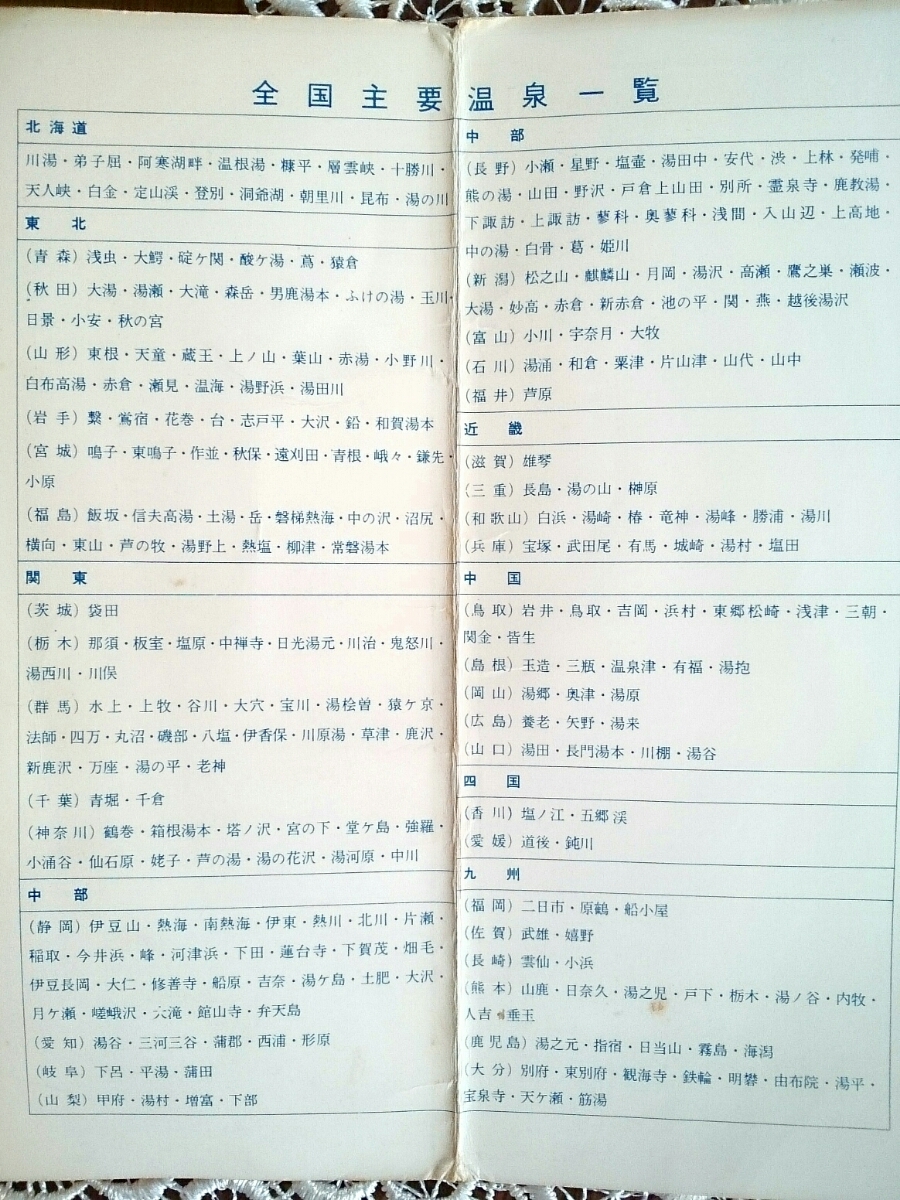 全国主要温泉一覧
北海道
川湯・弟子屈・阿寒湖畔・温根湯・糠平・層雲峡・十勝川・
天人峡・白金・定山渓・登別・洞爺湖・朝里川・昆布・湯の川
東北
(青森)浅虫・大鰐・碇ケ関・酸ケ湯・蔦・猿倉
(秋田)大湯・湯瀬・大滝・森岳・男鹿湯本・ふけの湯・玉川・
日景・小安・秋の宮
(山形)東根・天童・蔵王・上ノ山・葉山・赤湯・小野川・
白布高湯・赤倉・瀬見・温海・湯野浜・湯田川
(岩手)繋・鴬宿・花巻・台・志戸平・大沢・鉛・和賀湯本
(宮城)鳴子・東鳴子・作並・秋保・遠刈田・青根・峨々・鎌先・
小原
(福島)飯坂・信夫高湯・土湯・岳・磐梯熱海・中の沢・沼尻・
横向・東山・芦の牧・湯野上・熱塩・柳津・常磐湯本
関東
(茨城)袋田
(栃木)那須・板室・塩原・中禅寺・日光湯元・川治・鬼怒川・
湯西川・川俣
(群馬)水上・上牧・谷川・大穴・宝川・湯桧曽・猿ケ京・
法師・四万・丸沼・磯部・八塩・伊香保・川原湯・草津・鹿沢・
新鹿沢・万座・湯の平・老神
(千葉)青堀・千倉
(神奈川)鶴巻・箱根湯本・塔ノ沢・宮の下・堂ケ島・強羅・
小涌谷・仙石原・姥子・芦の湯・湯の花沢・湯河原・中川
中部
(静岡)伊豆山・熱海・南熱海・伊東・熱川・北川・片瀬・
稲取・今井浜・峰・河津浜・下田・蓮台寺・下賀茂・畑毛・
伊豆長岡・大仁・修善寺・船原・吉奈・湯ケ島・土肥・大沢・
月ケ瀬・嵯峨沢・大滝・館山寺・弁天島
(愛知)湯谷・三河三谷・蒲郡・西浦・形原
(岐阜)下呂・平湯・蒲田
(山梨)甲府・湯村・増富・下部
中部
(長野)小瀬・星野・塩壷・湯田中・安代・渋・上林・発哺・
熊の湯・山田・野沢・戸倉上山田・別所・霊泉寺・鹿教湯・
下諏訪・上諏訪・蓼科・奥蓼科・浅間・入山辺・上高地・
中の湯・白骨・葛・姫川
(新潟)松之山・麒麟山・月岡・湯沢・高瀬・鷹之巣・瀬波・
大湯・妙高・赤倉・新赤倉・池の平・関・燕・越後湯沢
(富山)小川・宇奈月・大牧
(石川)湯涌・和倉・粟津・片山津・山代・山中
(福井)芦原
近畿
(滋賀)雄琴
(三重)長島・湯の山・榊原
(和歌山)白浜・湯崎・椿・竜神・湯峰・勝浦・湯川
(兵庫)宝塚・武田尾・有馬・城崎・湯村・塩田
中国
(鳥取)岩井・鳥取・吉岡・浜村・東郷松崎・浅津・三朝・
関金・皆生
(島根)玉造・三瓶・温泉津・有福・湯抱
(岡山)湯郷・奥津・湯原
(広島)養老・矢野・湯来
(山口)湯田・長門湯本・川棚・湯谷
四国
(香川)塩ノ江・五郷渓
(愛媛)道後・鈍川
九州
(福岡)二日市・原鶴・船小屋
(佐賀)武雄・嬉野
(長崎)雲仙・小浜
(熊本)山鹿・日奈久・湯之児・戸下・栃木・湯ノ谷・内牧・
人吉・垂玉
(鹿児島)湯之元・指宿・日当山・霧島・海潟
(大分)別府・東別府・観海寺・鉄輪・明礬・由布院・湯平・
宝泉寺・天ケ瀬・筋湯